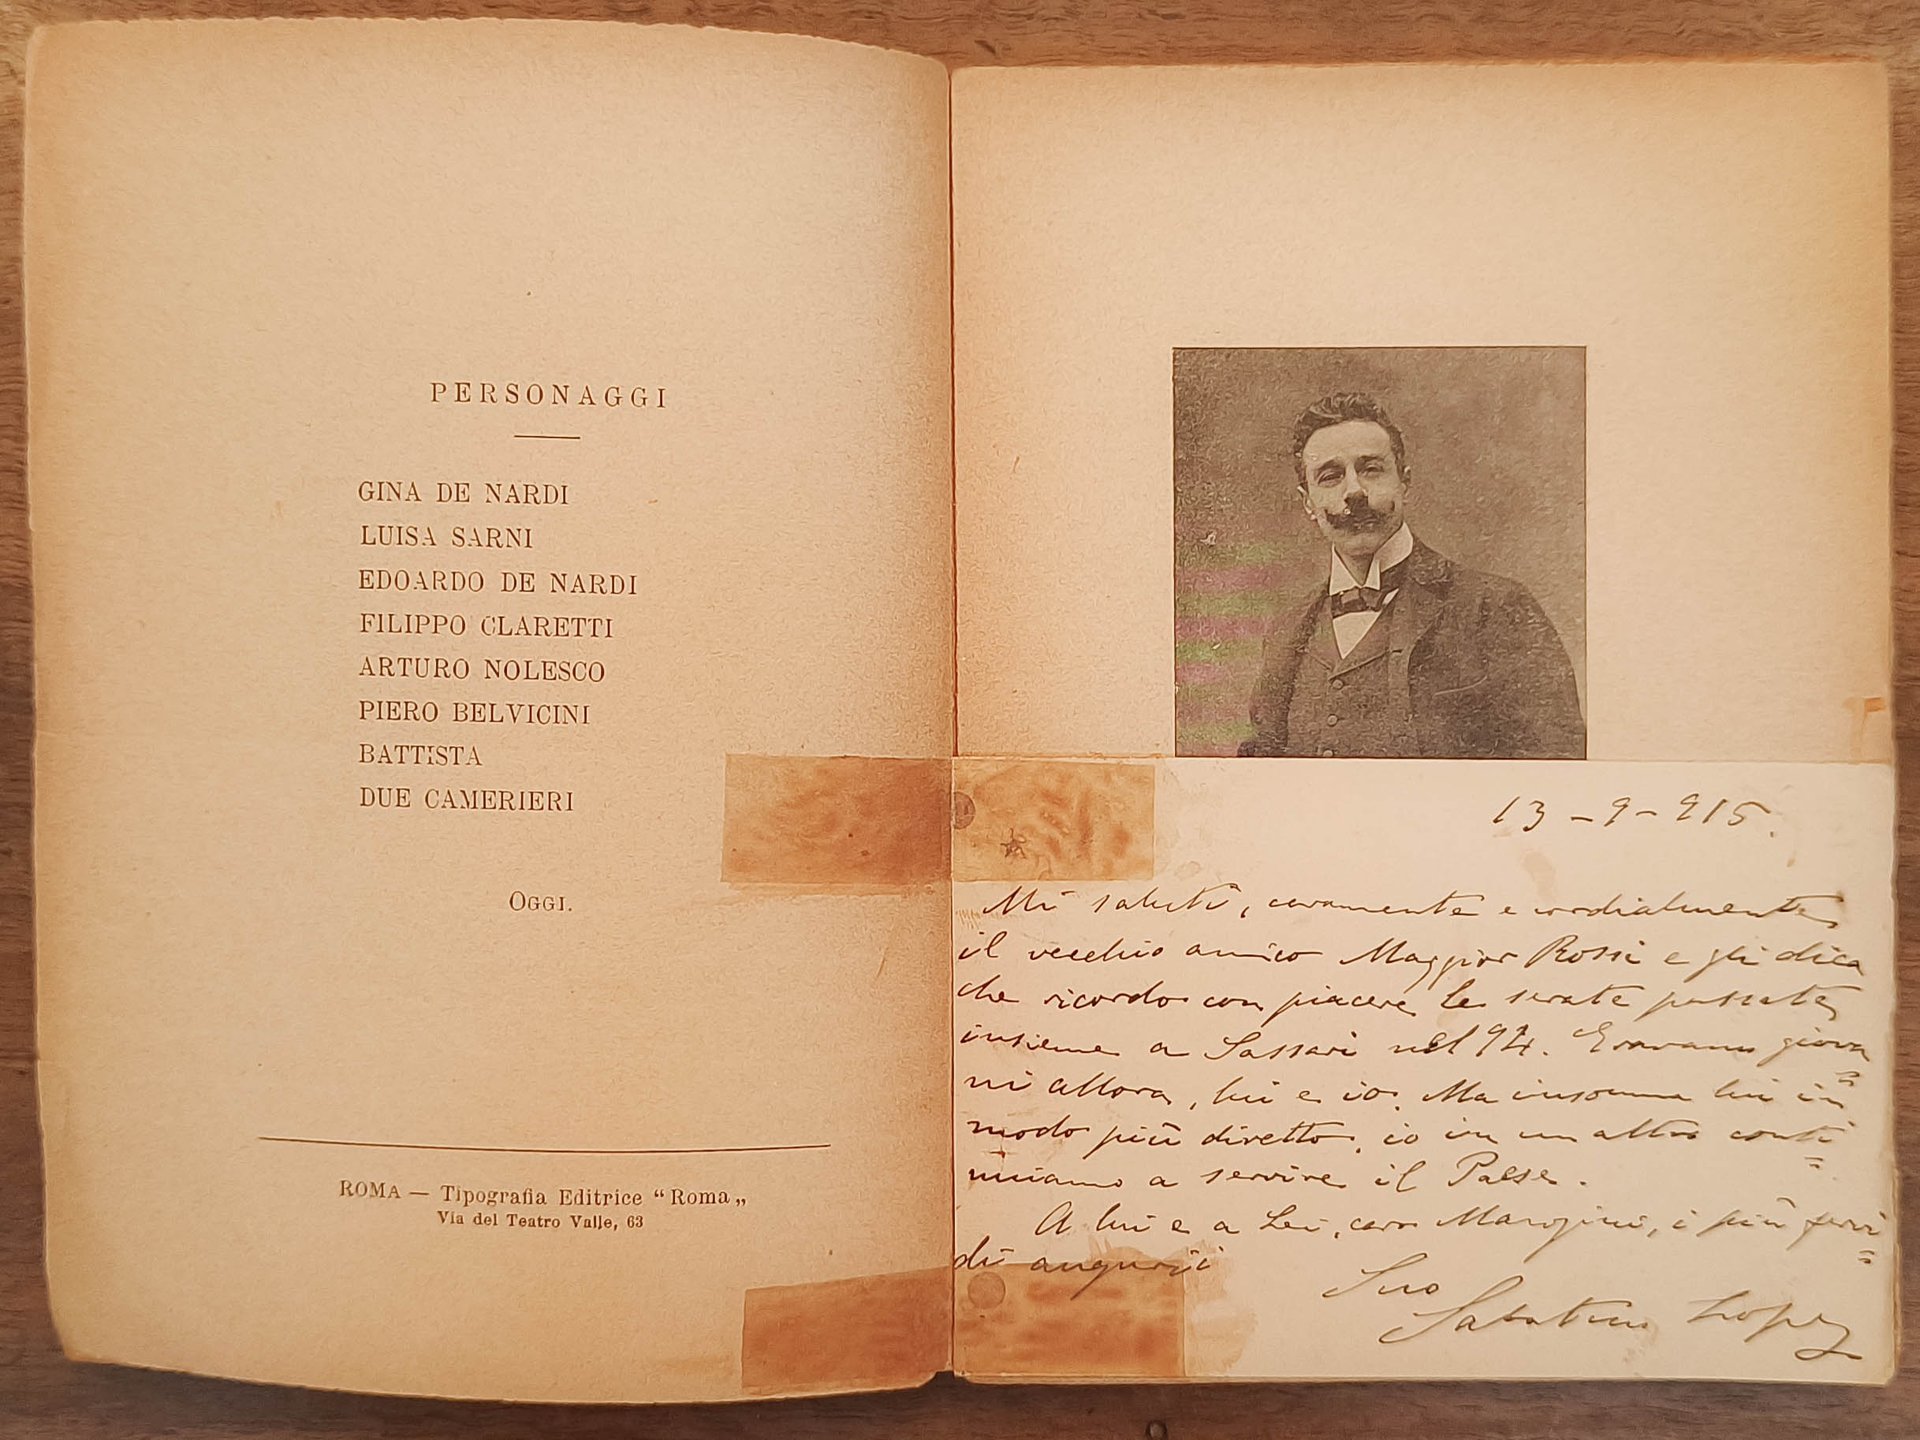 PERSONAGGI
GINA DE NARDI
LUISA SARNI
EDOARDO DE NARDI
FILIPPO CLARETTI
ARTURO NOLESCO
PIERO BELVICINI
BATTISTA
DUE CAMERIERI
OGGI.
ROMA — Tipografia Editrice “Roma„
Via del Teatro Valle, 63
13-9-915.
Mi saluti, caramente e cordialmente
il vecchio amico Maggior Rossi e gli dica
che ricordo con piacere le serate passate
insieme a Sassari nel 94. Eravamo giova=
ni allora, lui e io. Ma insomma lui in
modo più diretto, io in un altro conti=
nuiamo a servire il Paese.
A lui e a Lei, caro i più fervi=
di augurii
Suo
Sabatino Lopez